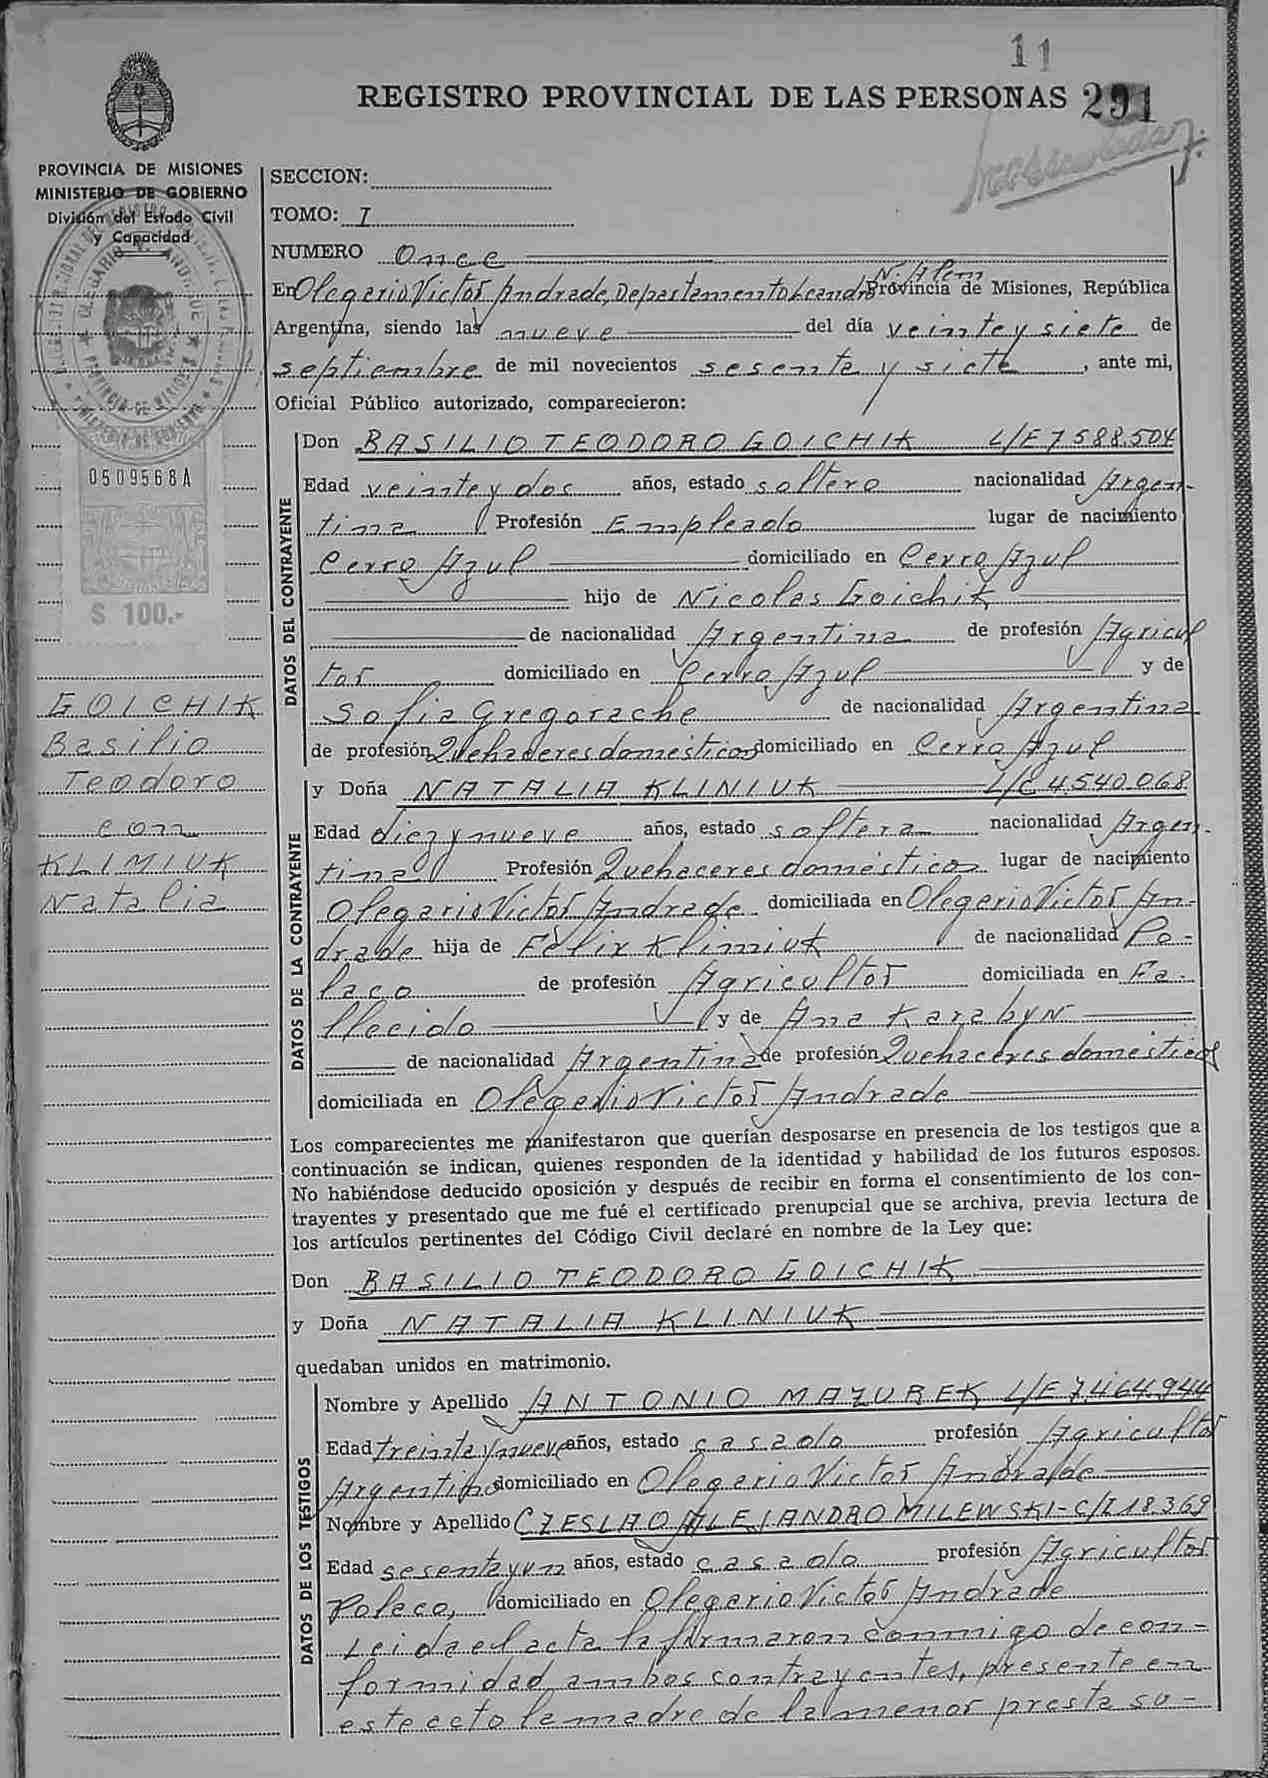 11
REGISTRO PROVINCIAL DE LAS PERSONAS 291
PROVINCIA DE MISIONES
MINISTERIO DE GOBIERNO
División del Estado Civil
y Capacidad
0509568A
$ 100.-
GOICHIK
Basilio
Teodoro
con
KLIMIUK
Natalia
SECCION:
TOMO: I
NUMERO Once
En Olegario Victor Andrade, Departamento Leandro N. Alem Provincia de Misiones, República
Argentina, siendo las nueve del día veinte y siete de
septiembre de mil novecientos sesenta y siete, ante mi,
Oficial Público autorizado, comparecieron:
DATOS DEL CONTRAYENTE
Don BASILIO TEODORO GOICHIK L/E 7588.504
Edad veinte y dos años, estado soltero nacionalidad Argen-
tina Profesión Empleado lugar de nacimiento
Cerro Azul domiciliado en Cerro Azul
hijo de Nicolas Goichik
de nacionalidad Argentina de profesión Agricul
tor domiciliado en Cerro Azul y de
Sofia Gregorache de nacionalidad Argentina
de profesión Quehaceres domesticos domiciliado en Cerro Azul
DATOS DE LA CONTRAYENTE
y Doña NATALIA KLINIUK L/C 4.540.068
Edad diez y nueve años, estado soltera nacionalidad Argen-
tina Profesión Quehaceres domésticos lugar de nacimiento
Olegario Victor Andrade domiciliada en Olegario Victor An-
drade hija de Felix Klimiuk de nacionalidad Po-
laco de profesión Agricultor domiciliada en Fa-
llecido y de Ana Karabyn
de nacionalidad Argentina de profesión Quehaceres domesticos
domiciliada en Olegario Victor Andrade
Los comparecientes me manifestaron que querían desposarse en presencia de los testigos que a
continuación se indican, quienes responden de la identidad y habilidad de los futuros esposos.
No habiéndose deducido oposición y después de recibir en forma el consentimiento de los con-
trayentes y presentado que me fué el certificado prenupcial que se archiva, previa lectura de
los artículos pertinentes del Código Civil declaré en nombre de la Ley que:
Don BASILIO TEODORO GOICHIK
y Doña NATALIA KLINIUK
quedaban unidos en matrimonio.
DATOS DE LOS TESTIGOS
Nombre y Apellido ANTONIO MAZUREK L/E 7.464.944
Edad treinta y nueve años, estado casado profesión Agricultor
Argentino domiciliado en Olegario Victor Andrade
Nombre y Apellido CZESLAO ALEJANDRO MILEWSKI - C/I 18.369
Edad sesenta y un años, estado casado profesión Agricultor
Polaco, domiciliado en Olegario Victor Andrade
Leida el acta la firmaron conmigo de con-
formidad ambos contrayentes, presente en
este acto la madre de la menor presta su-